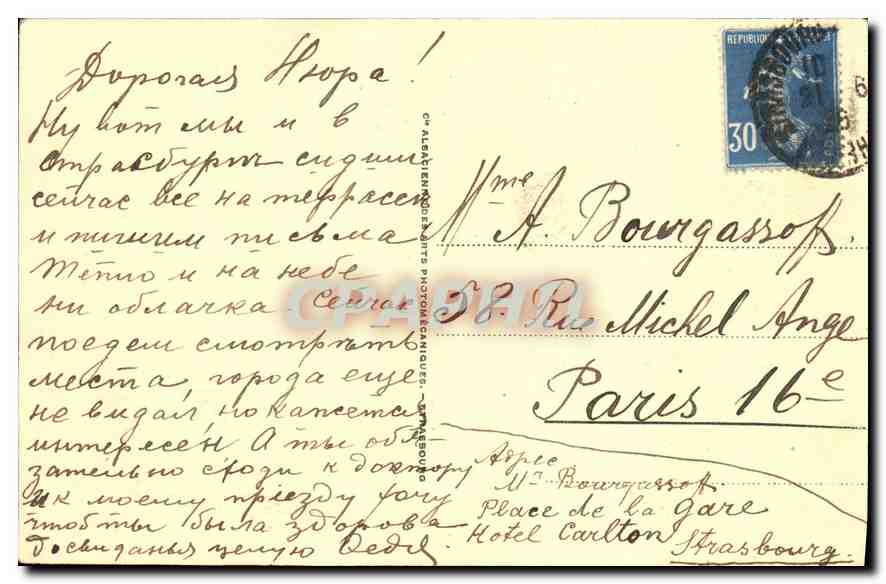 Дорогая Нюра!
Ну вот мы и в
страсбургѣ сидим
сейчас все на террассе
и пишем письма
Тепло и на небе
ни облачка. Сейчас
поедем смотрѣть
места, города еще
не видал, но кажется
интересен А ты обя-
зательно сходи к доктору
и к моему приезду хочу
чтоб ты была здорова
До свиданья целую Федя
Cie ALSACIENNE DES ARTS PHOTOMÉCANIQUES. — STRASBOURG
RÉPUBLIQUE
30
STRASBOURG
10
21
6
Mme A. Bourgassoff.
58. Rue Michel Ange
Paris 16e
Адрес
Mr Bourgassoff
Place de la gare
Hotel Carlton
Strasbourg.